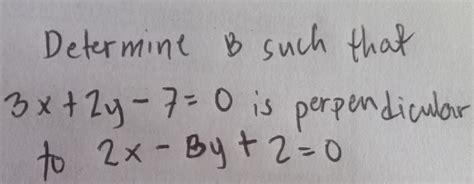 Determine B such that
3x + 2y - 7 = 0 is perpendicular
to 2x - By + 2 = 0